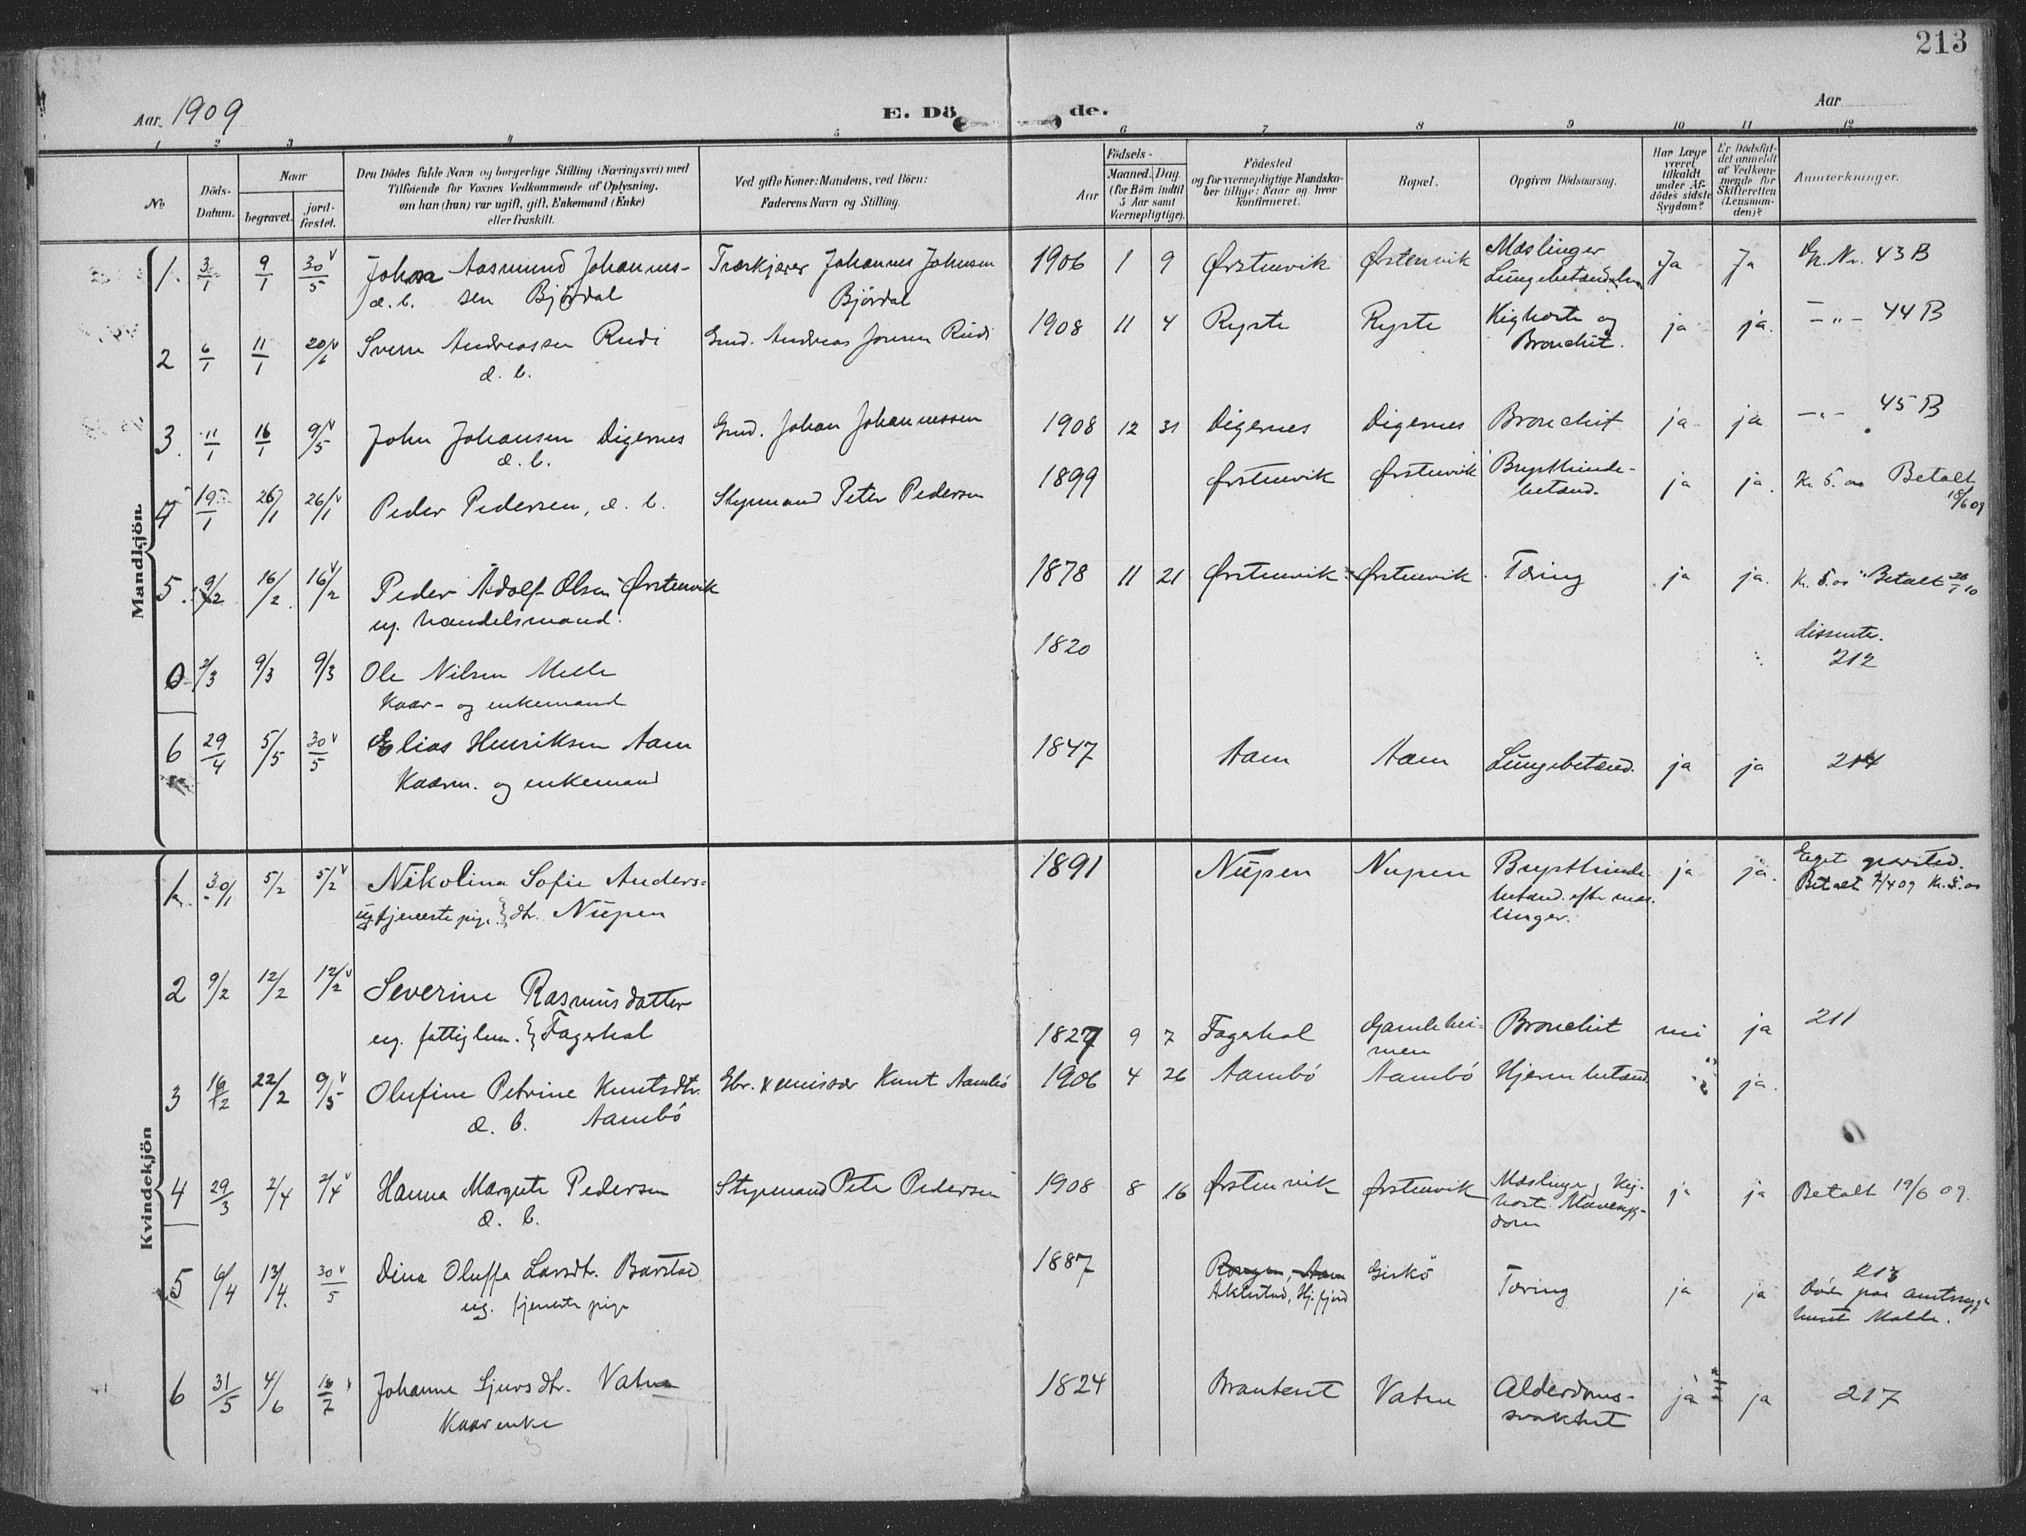 213
Aar. 1909
E. Dö de.
Aar
1 2 3 4 5 6 7 8 9 10 11 12
No
Döds-Datum.
Naar
begravet.
jord-fæstet.
Den Dödes fulde Navn og borgerlige Stilling (Næringsvei) med
Tilföiende for Voxnes Vedkommende af Oplysning,
om han (hun) var ugift, gift, Enkemand (Enke)
eller fraskilt.
Ved gifte Koner: Mandens, ved Börn:
Faderens Navn og Stilling.
Födsels-
Aar
Maaned. Dag
(for Börn indtil
5 Aar samt
Værnepligtige).
Födested
og for værnepligtige Mandska-
ber tillige: Naar og hvor
konfirmeret.
Bopæl.
Opgiven Dödsaarsag.
Har Læge
været
tilkaldt
under Af-
dödes sidste
Sygdom?
Er Dödsfal-
det anmeldt
af Vedkom-
mende for
Skifteretten
(Lensman-
den)?
Anmærkninger.
Mandkjön.
1. 3/1 9/1 30/5 Johan Aasmund Johannes- Johannes Johnsen 1906 1 9 Ørstenvik Ørstenvik Mæslinger Ja Ja Gr. Nr. 43 B
d. b. sen Björdal Björdal Lungebetændelse
2 6/1 11/1 20/6 Andreassen Rudi Gmd. Andreas Jonsen Rudi 1908 11 4 Ryste Ryste Kighoste og ja ja. -"- 44 B
d. b. Bronchit.
3. 11/1 16/1 9/5 John Johansen Digernes Gmd. Johan Johannessen 1908 12 31 Digernes Digernes Bronchit ja ja -"- 45 B
d. b.
4 19/1 26/1 26/1 Peder Pedersen, d. b. Styrmand Peter Pedersen 1899 Ørstenvik Ørstenvik Brysthinde- ja ja. Kr. 5.00 Betalt
betænd. 18/6 09
5. 9/2 16/2. 16/2 Peder Adolf Olsen Ørstenvik 1878 11 21 Ørstenvik Ørstenvik. Tæring ja ja. Kr. 5.00 Betalt
ug. handelsmand.
0 2/3 9/3 9/3 Ole Nilsen Melle 1820 dissenter.
Kaar- og enkemand 212
6 29/4 5/5 30/5 Elias Henriksen Aam 1847 Aam Aam Lungebetænd. ja ja 214
Kaarm. og enkemand
Kvindekjön
1. 30/1 5/2 5/2 Nikolina Sofie Anders= 1891 Nupen Nupen Brysthinde- ja ja. Eget gravsted.
ug. tjenestepige. } dtr. Nupen betænd. efter mæs- Betalt 7/4 09 Kr. 5.00
linger.
2 9/2 12/2 12/2 Severine Rasmusdatter
ug. fattiglem. } Fagerhol 1827 9 7 Fagerhol Gamlehei- Bronchit nei ja 211
men
3 16/2 22/2 9/5 Olufine Petrine Knutsdtr. Knut Aambö 1906 4 26 Aambö Aambö Hjernebetænd. ja.
d. b. Aambö
4 29/3 2/4 2/4 Hanna Margrete Pedersen Styrmand Peter Pedersen 1908 8 16 Ørstenvik Ørstenvik Mæslinger, Kig- ja ja Betalt 19/6 09.
d. b. hoste. Mavesyg-
dom
5 6/4 13/4. 30/5 Dina Oluffa Larsdtr. Barstad 1887 Giskö Tæring ja ja 213
ug. tjenestepige Hj. fjord Död paa amtssyge-
huset Molde.
6 31/5 4/6 18/7 Johanne Sjursdtr. Vatne 1824 Vatne Alderdoms- ja ja 217
Kaarenke svakhet